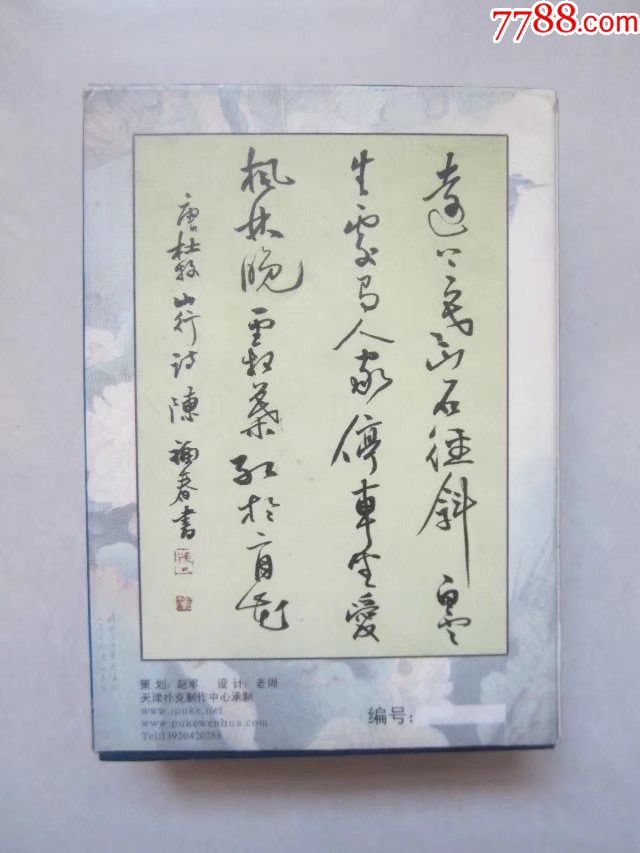 7788.com
遠上寒山石徑斜白雲
生處有人家停車坐愛
楓林晚霜葉紅於二月花
唐杜牧山行詩陳春書
策 划：赵军 设 计：老周
天津扑克制作中心承制
www.ipuke.net
www.pukewenhua.com
Tel:13920420288
编号: